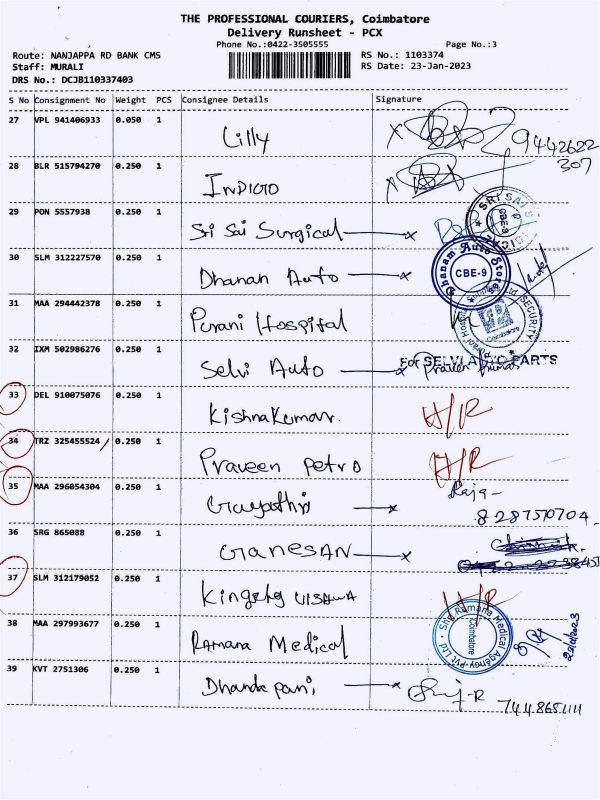 THE PROFESSIONAL COURIERS, Coimbatore
Delivery Runsheet - PCX
Phone No.:0422-3505555 Page No.:3
Route: NANJAPPA RD BANK CMS RS No.: 1103374
Staff: MURALI RS Date: 23-Jan-2023
DRS No.: DCJB110337403
S No Consignment No Weight PCS Consignee Details Signature
27 VPL 941406933 0.050 1 Lilly 9442622
307
28 BLR 515794270 0.250 1 INDIGO
29 PON 5557938 0.250 1 Sri Sai Surgical x SRI SAI CBE-9
30 SLM 312227570 0.250 1 Dhanan Auto x Dhanam Auto Stores CBE-9
31 MAA 294442378 0.250 1 Purani Hospital SECURITY Coimbatore
32 IXM 502986276 0.250 1 Selvi Auto x For SELVI AUTO PARTS
33 DEL 910075076 0.250 1 Kishnakumar. H/R
34 TRZ 325455524 0.250 1 Praveen petro H/R
35 MAA 296054304 0.250 1 Gayathri x Raja -
8287570704.
36 SRG 865088 0.250 1 GANESAN x
37 SLM 312179052 0.250 1 H/R
38 MAA 297993677 0.250 1 Ramana Medical Sri Ramana Medical Agency Pvt Ltd Coimbatore
39 KVT 2751306 0.250 1 Dhandapani x